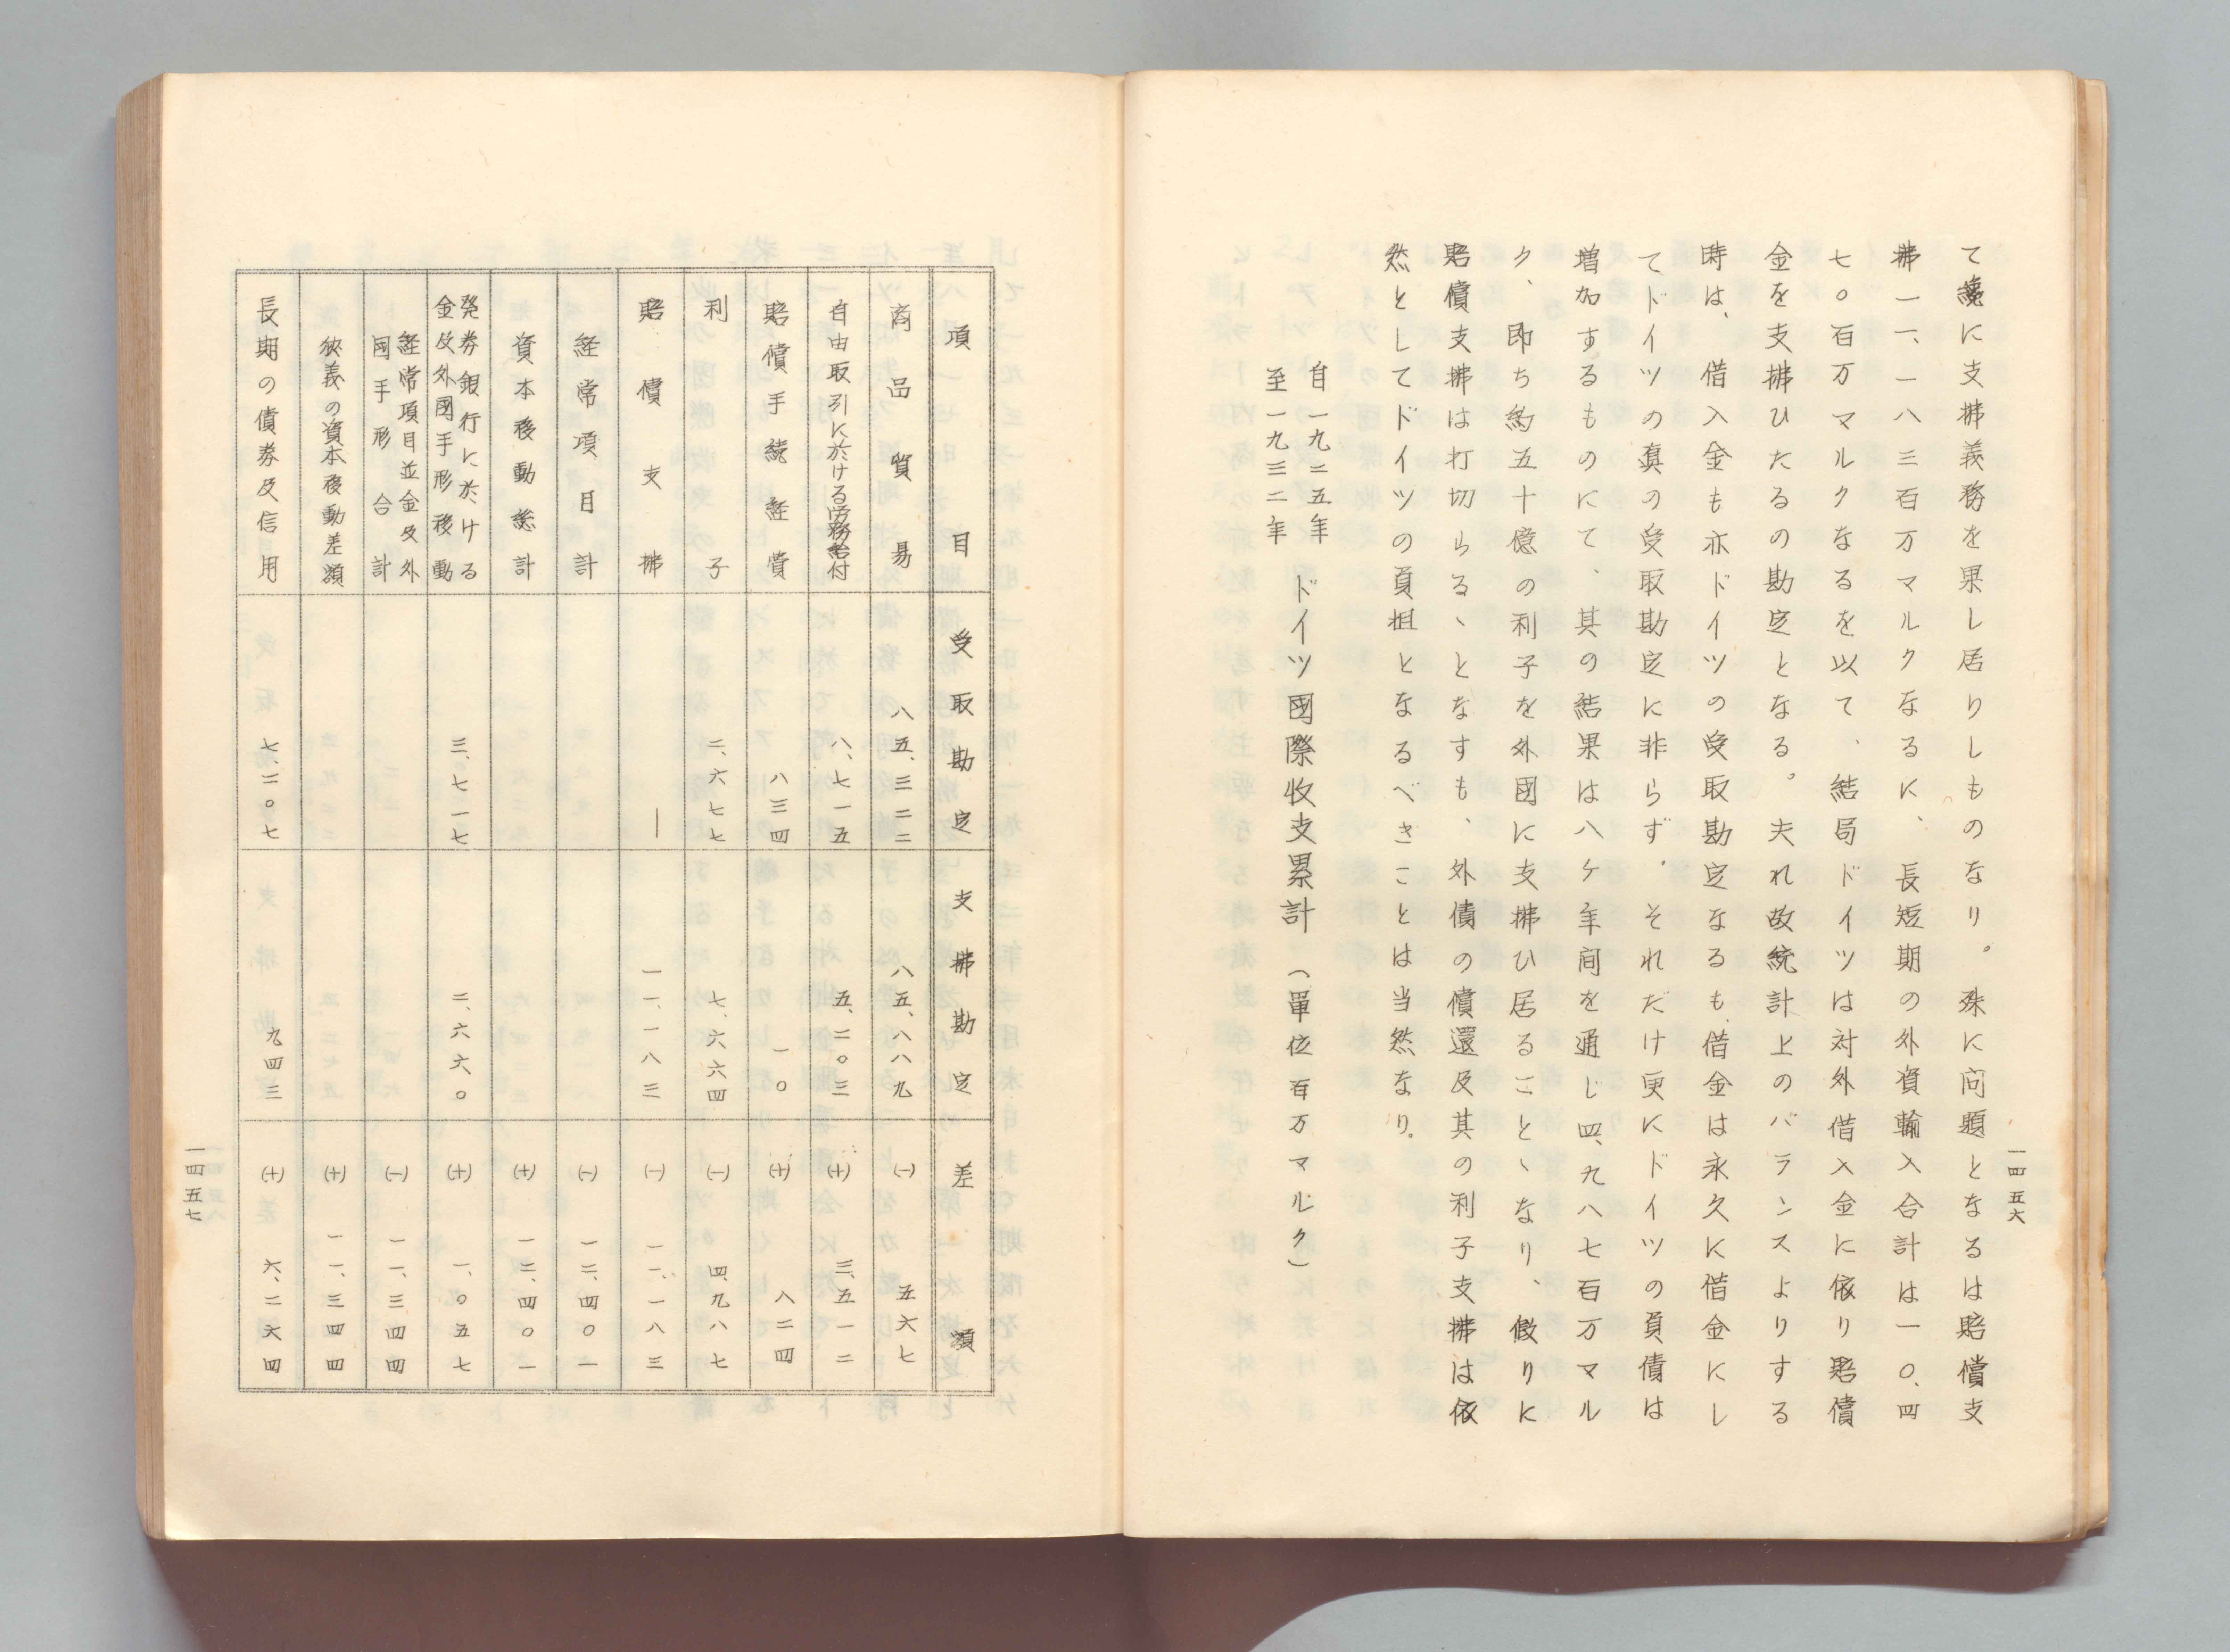 一四五六
て纔に支拂義務を果し居りしものなり。殊に問題となるは賠償支
拂一一、一八三百万マルクなるに、長短期の外資輸入合計は一〇、四
七〇百万マルクなるを以て、結局ドイツは対外借入金に依り賠償
金を支拂ひたるの勘定となる。夫れ故統計上のバランスよりする
時は、借入金も亦ドイツの受取勘定なるも、借金は永久に借金にし
てドイツの真の受取勘定に非らず、それだけ更にドイツの負債は
増加するものにて、其の結果は八ケ年间を通じ四、九八七百万マル
ク、即ち約五十億の利子を外國に支拂ひ居ること丶なり、假りに
賠償支拂は打切らる丶となすも、外債の償還及其の利子支拂は依
然としてドイツの負担となるべきことは当然なり。
自一九二五年
至一九三二年
ドイツ國際收支累計（單位百万マルク）
項目 受取勘定 支拂勘定 差額
商品貿易 八五、三二二 八五、八八九 (一) 五六七
自由取引に於ける労務給付 八、七一五 五、二〇三 (十) 三、五一二
賠償手続経費 八三四 一〇 (十) 八二四
利子 二、六七七 七、六六四 (一) 四、九八七
賠償支拂 — 一一、一八三 (一) 一一、一八三
経常項目計 (一) 一二、四〇一
資本移動総計 (十) 一二、四〇一
発券銀行に於ける
金及外國手形移動 三、七一七 二、六六〇 (十) 一、〇五七
経常項目並金及外
囯手形合計 (一) 一一、三四四
狹義の資本移動差額 (十) 一一、三四四
長期の債券及信用 七、二〇七 九四三 (十) 六、二六四
一四五七